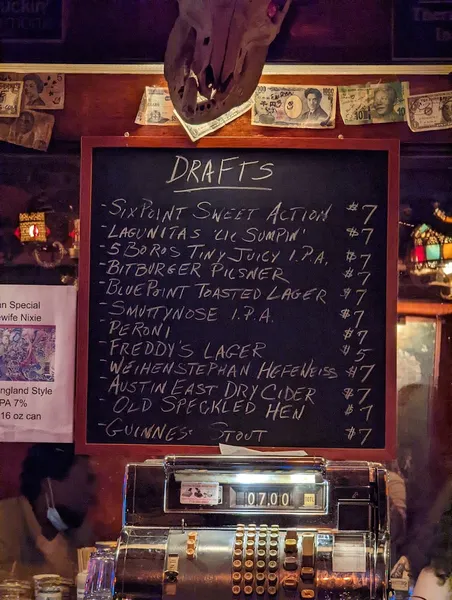 DRAFTS
-SIXPOINT SWEET ACTION $7
-LAGUNITAS 'LIL SUMPIN' $7
-5 BOROS TINY JUICY I.P.A. $7
-BITBURGER PILSNER $7
-BLUEPOINT TOASTED LAGER $7
-SMUTTYNOSE I.P.A. $7
-PERONI $7
-FREDDY'S LAGER $5
-WEIHENSTEPHAN HEFEWEISS $7
-AUSTIN EAST DRY CIDER $7
-OLD SPECKLED HEN $7
-GUINNES STOUT $7
Special
wife Nixie
England Style
PA 7%
16 oz can
07.00